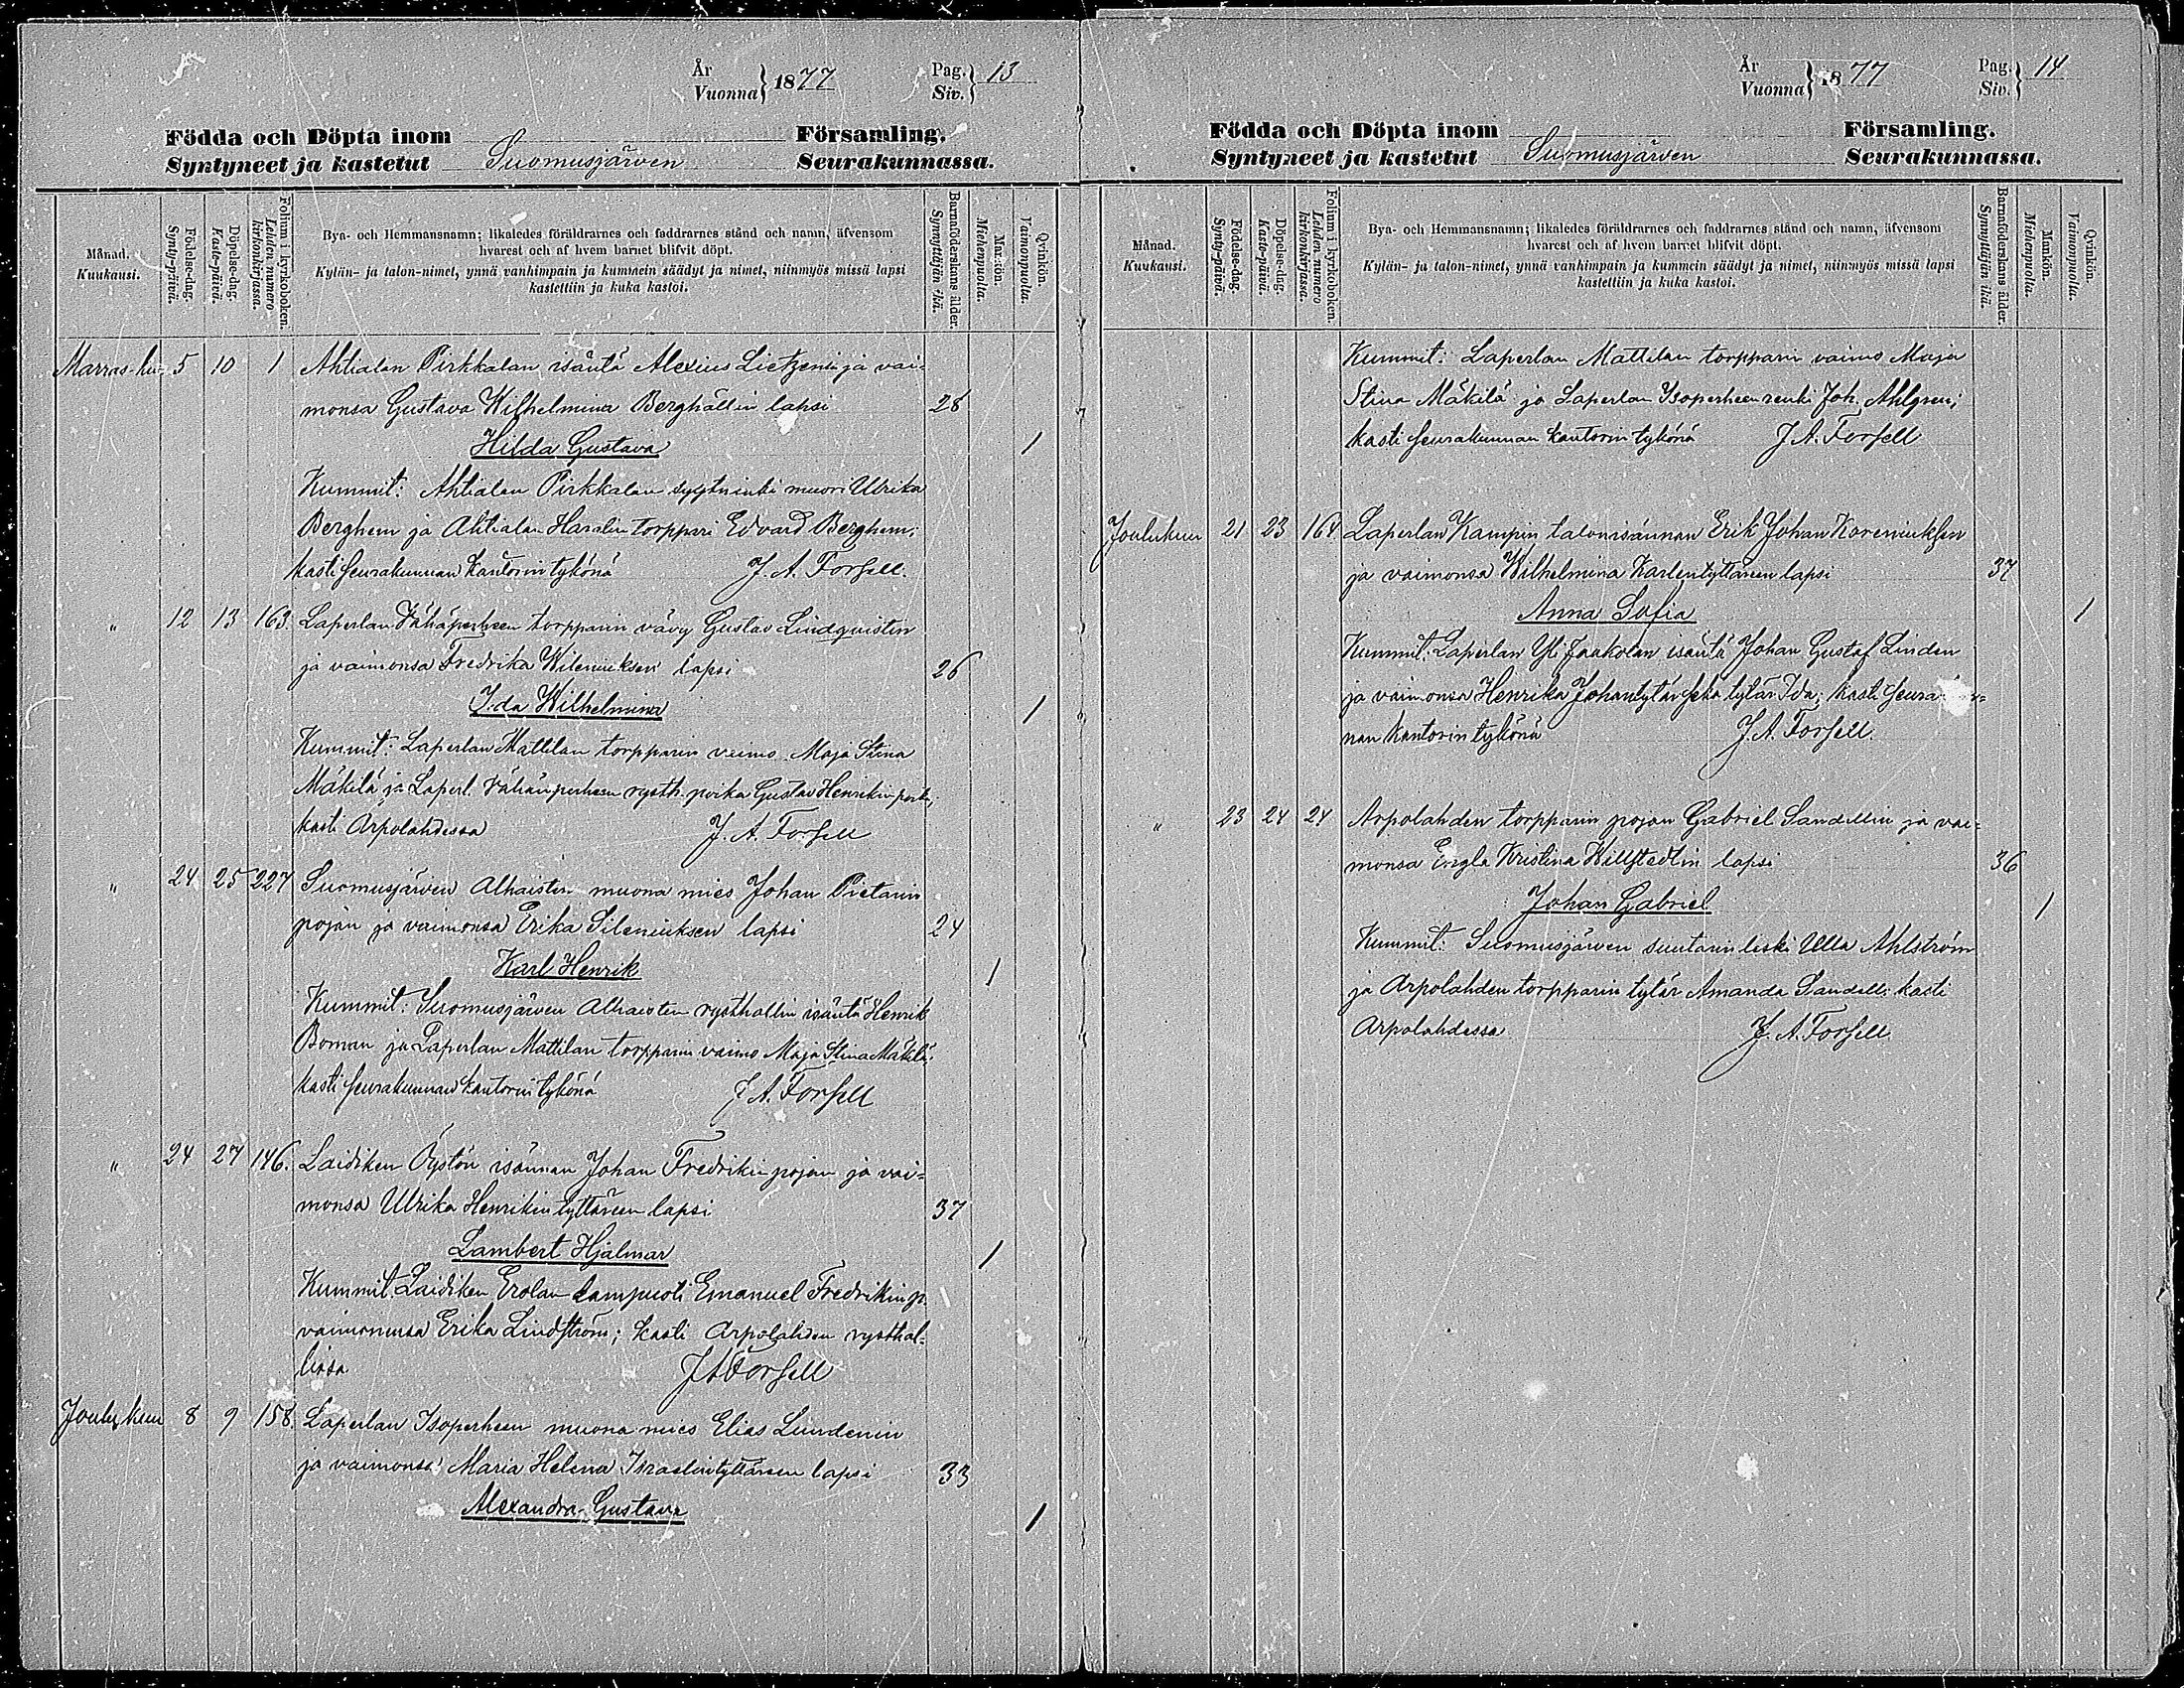 År
Vuonna } 1877
Pag.
Siv. } 13
Födda och Döpta inom Församling.
Syntyneet ja kastetut Suomusjärven Seurakunnassa.
Månad.
Kuukausi.
Födelse-dag.
Synty-päivä.
Döpelse-dag.
Kaste-päivä.
Folium i kyrkoboken.
Lehden numero kirkonkirjassa.
Bya- och Hemmansnamn; likaledes föräldrarnes och faddrarnes stånd och namn, äfvensom
hvarest och af hvem barnet blifvit döpt.
Kylän- ja talon-nimet, ynnä vanhimpain ja kummein säädyt ja nimet, niinmyös missä lapsi
kastettiin ja kuka kastoi.
Barnaföderskans ålder.
Synnyttäjän ikä.
Mankön.
Miehenpuolta.
Qvinkön.
Vaimonpuolta.
Marras-ku 5 10 1 Ahtialan Pirkkalan isäntä Alexius Lietzenin ja vai-
monsa Gustava Wilhelmina Berghällin lapsi 28
Hilda Gustava 1
Kummit: Ahtialan Pirkkalan muori Ulrika
Berghem ja Ahtialan Haralin torppari Edvard Berghem;
kasti seurakunnan kantorin tykönä J. A. Forsell.
" 12 13 163. Laperlan Vähäperheen torpparin vävy Gustav Lindqvistin
ja vaimonsa Fredrika Wileniuksen lapsi 26
Ida Wilhelmina 1
Kummit: Laperlan Mattilan torpparin vaimo Maja Stina
Mäkilä ja Laperl. Vähänperheen rysth. poika Gustav Henrikin poika;
kasti Arpolahdessa J. A. Forsell
" 24 25 227 Suomusjärven Alhaisten muona mies Johan Pietarin
pojan ja vaimonsa Erika Sileniuksen lapsi 24
Karl Henrik 1
Kummit: Suomusjärven Alhaisten rysthollin isäntä Henrik
Boman ja Laperlan Mattilan torpparin vaimo Maja Stina Mäkilä;
kasti seurakunnan kantorin tykönä J. A. Forsell
" 24 27 146. Laidiken Öystön isännän Johan Fredrikin pojan ja vai-
monsa Ulrika Henrikin tyttären lapsi 37
Lambert Hjalmar 1
Kummit: Laidiken Erolan lampuoti Emanuel Fredrikin p.
vaimonensa Erika Lindström; kasti Arpolahden rysthol-
lissa J A Forsell
Joulukuu 8 9 158. Laperlan Isoperheen muona mies Elias Lindenin
ja vaimonsa Maria Helena Israelintyttären lapsi 33
Alexandra Gustava 1
År
Vuonna } 1877
Pag.
Siv. } 14
Födda och Döpta inom Församling.
Syntyneet ja kastetut Suomusjärven Seurakunnassa.
Månad.
Kuukausi.
Födelse-dag.
Synty-päivä.
Döpelse-dag.
Kaste-päivä.
Folium i kyrkoboken.
Lehden numero kirkonkirjassa.
Bya- och Hemmansnamn; likaledes föräldrarnes och faddrarnes stånd och namn, äfvensom
hvarest och af hvem barnet blifvit döpt.
Kylän- ja talon-nimet, ynnä vanhimpain ja kummein säädyt ja nimet, niinmyös missä lapsi
kastettiin ja kuka kastoi.
Barnaföderskans ålder.
Synnyttäjän ikä.
Mankön.
Miehenpuolta.
Qvinkön.
Vaimonpuolta.
Kummit: Laperlan Mattilan torpparin vaimo Maja
Stina Mäkilä ja Laperlan Isoperheen renki Joh. Ahlgren;
kasti seurakunnan kantorin tykönä J. A. Forsell
Joulukuu 21 23 164 Laperlan Kampin talonisännän Erik Johan Koreniuksen
ja vaimonsa Wilhelmina Karlentyttären lapsi 37
Anna Sofia 1
Kummit: Laperlan Yli Jaakolan isäntä Johan Gustaf Linden
ja vaimonsa Henrika Johantytär sekä tytär Ida; kasti seurakun-
nan kantorin tykönä J. A. Forsell.
" 23 24 24 Arpolahden torpparin pojan Gabriel Sandellin ja vai-
monsa Engla Kristina Hillstedtin lapsi 36
Johan Gabriel 1
Kummit: Suomusjärven suutarin leski Ulla Ahlström
ja Arpolahden torpparin tytär Amanda Sandell; kasti
Arpolahdessa J. A. Forsell